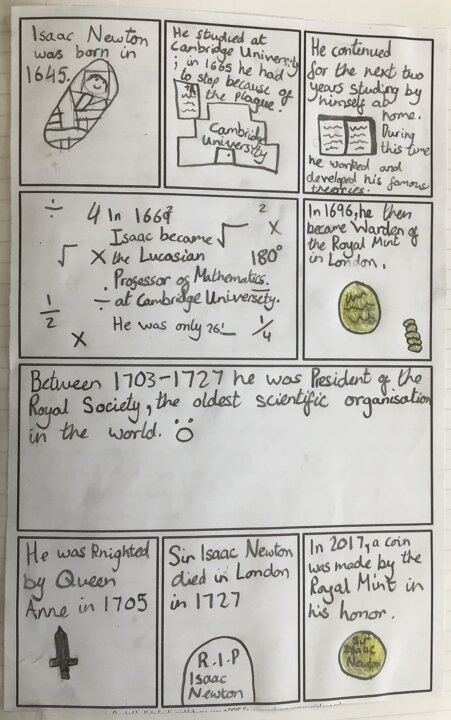 Isaac Newton
was born in
1645.
He studied at
Cambridge University
; in 1665 he had
to stop because of
the plague.
Cambridge
University
He continued
for the next two
years studing by
himself at
home.
During
this time
he worked and
developed his famous
theories.
÷ 4 In 1669 2
Isaac became √ x
√ x the Lucasian 180°
Professor of Mathematics.
1/2 ÷ at Cambridge University.
x He was only 26! 1/4
In 1696, he then
became Warden of
the Royal Mint
in London.
Between 1703-1727 he was President of the
Royal Society, the oldest scientific organisation
in the world.
He was Knighted
by Queen
Anne in 1705
Sir Isaac Newton
died in London
in 1727
R.I.P
Isaac
Newton
In 2017, a coin
was made by the
Royal Mint in
his honor.
Sir
Isaac
Newton